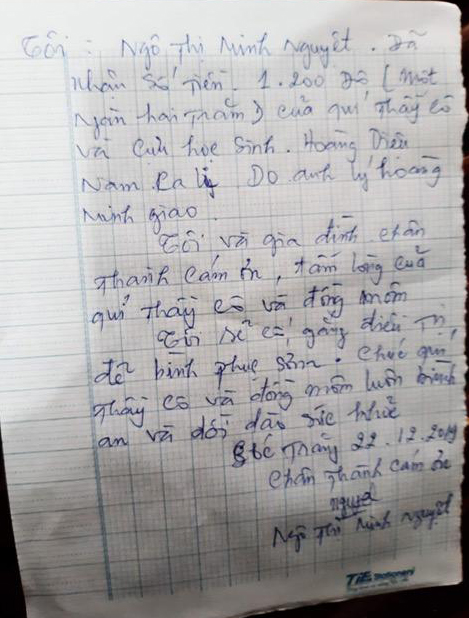 Tôi : Ngô Thị Minh Nguyệt. Đã
nhận số tiền. 1.200 Đô (Một
ngàn hai trăm) của quí thầy cô
và cựu học sinh. Hoàng Diệu
Nam Ca li Do anh lý hoàng
Minh giao.
Tôi và gia đình chân
thành cám ơn, tấm lòng của
quí thầy cô và đồng môn
Tôi sẽ cố gắng điều trị,
để bình phục sớm. Chúc quí
thầy cô và đồng môn luôn bình
an và dồi dào sức khoẻ
Tháng 22.12.2019
Chân thành cám ơn
Nguyệt
Ngô Thị Minh Nguyệt